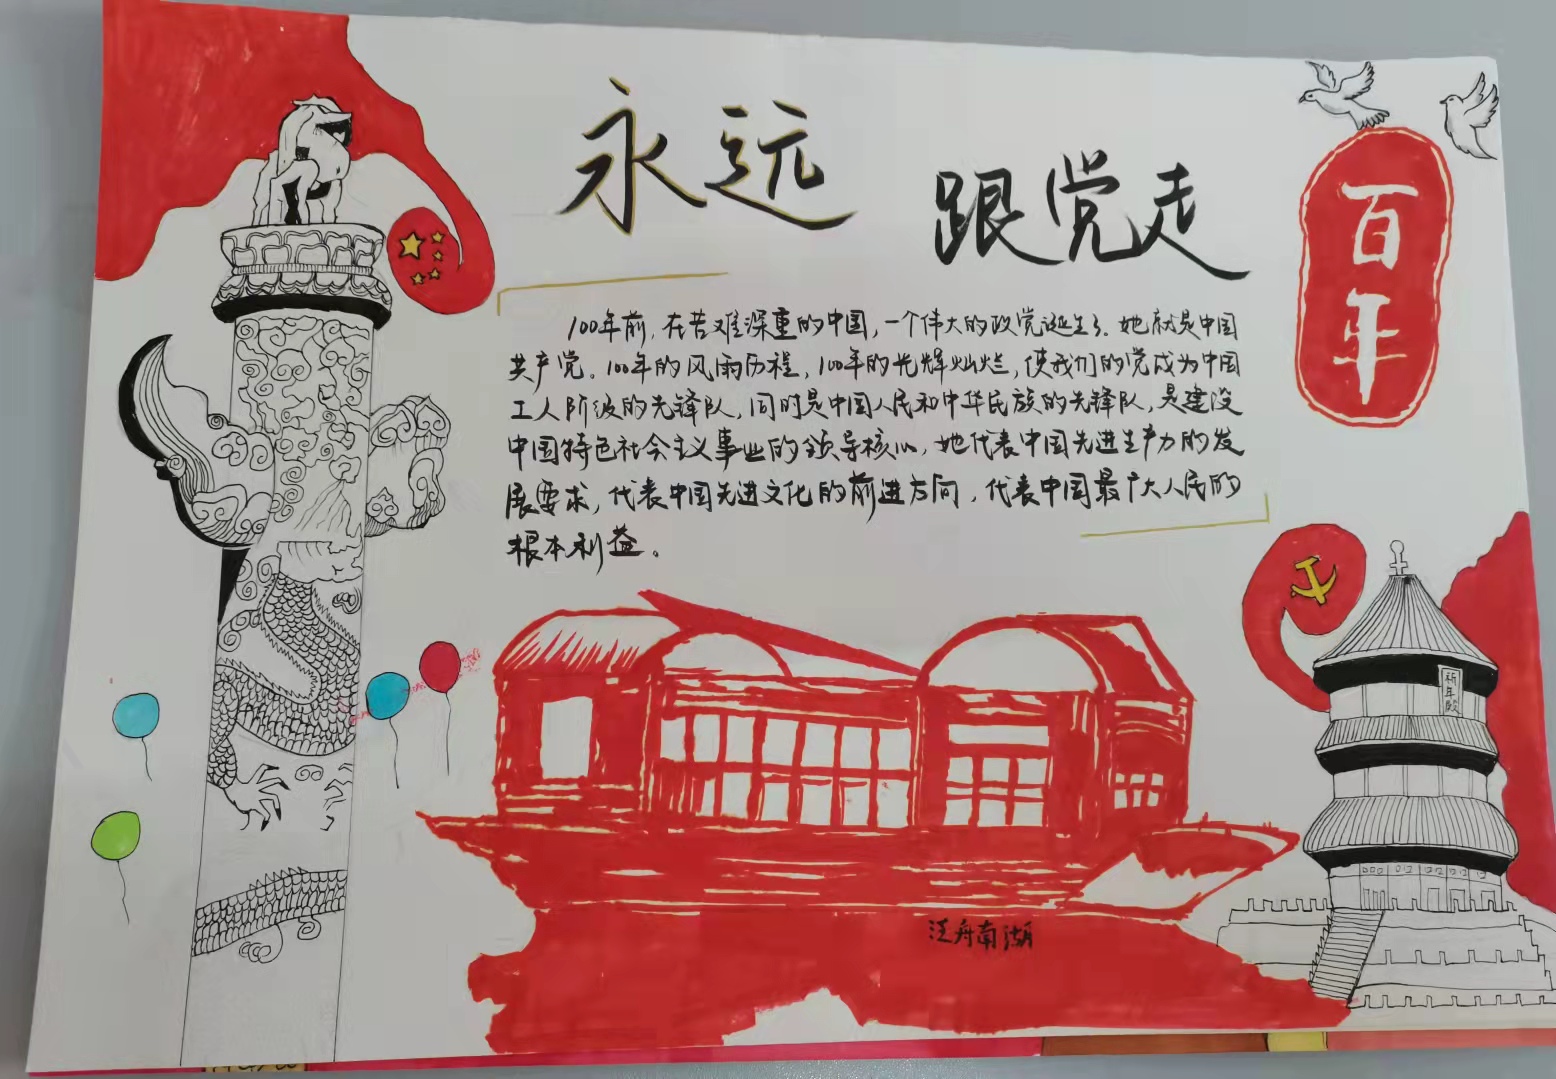 永远
跟党走
百年
100年前,在苦难深重的中国,一个伟大的政党诞生了.她就是中国
共产党。100年的风雨历程,100年的光辉灿烂,使我们的党成为中国
工人阶级的先锋队,同时是中国人民和中华民族的先锋队,是建设
中国特色社会主义事业的领导核心,她代表中国先进生产力的发
展要求,代表中国先进文化的前进方向,代表中国最广大人民的
根本利益。
祈年殿
泛舟南湖